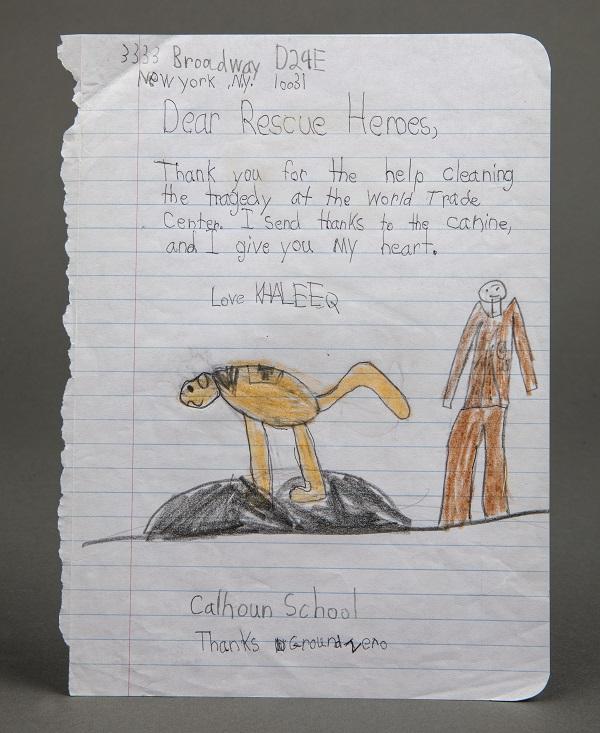 3333 Broadway D24E
New york ,Ny. 10031
Dear Rescue Heroes,
Thank you for the help cleaning
the tragedy at the World Trade
Center. I send thanks to the canine,
and I give you My heart.
Love KHALEEQ
Calhoun School
Thanks Ground Zero